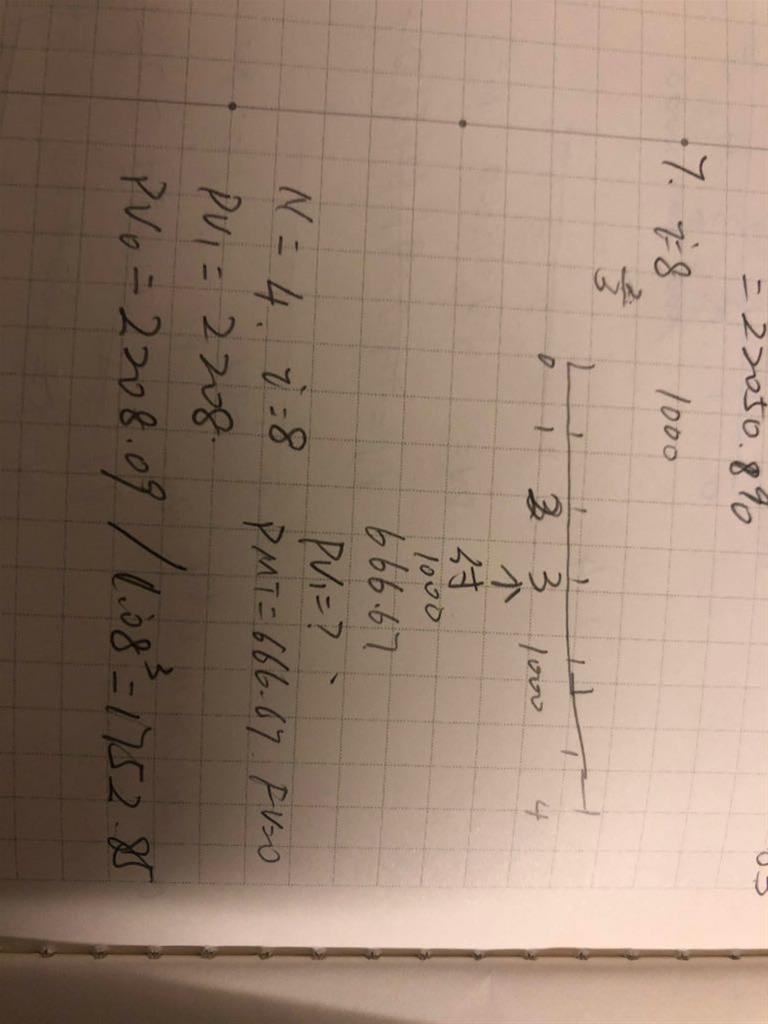 = 22050.890
7. i=8 1000
2/3
0 1 2 3 1000 4
↑
付
1000
666.67
PV₁=?
N = 4. i=8 PMT=666.67. FV=0
PV₁ = 2208.
PV₀ = 2208.09 / 1.08³ = 1752.85